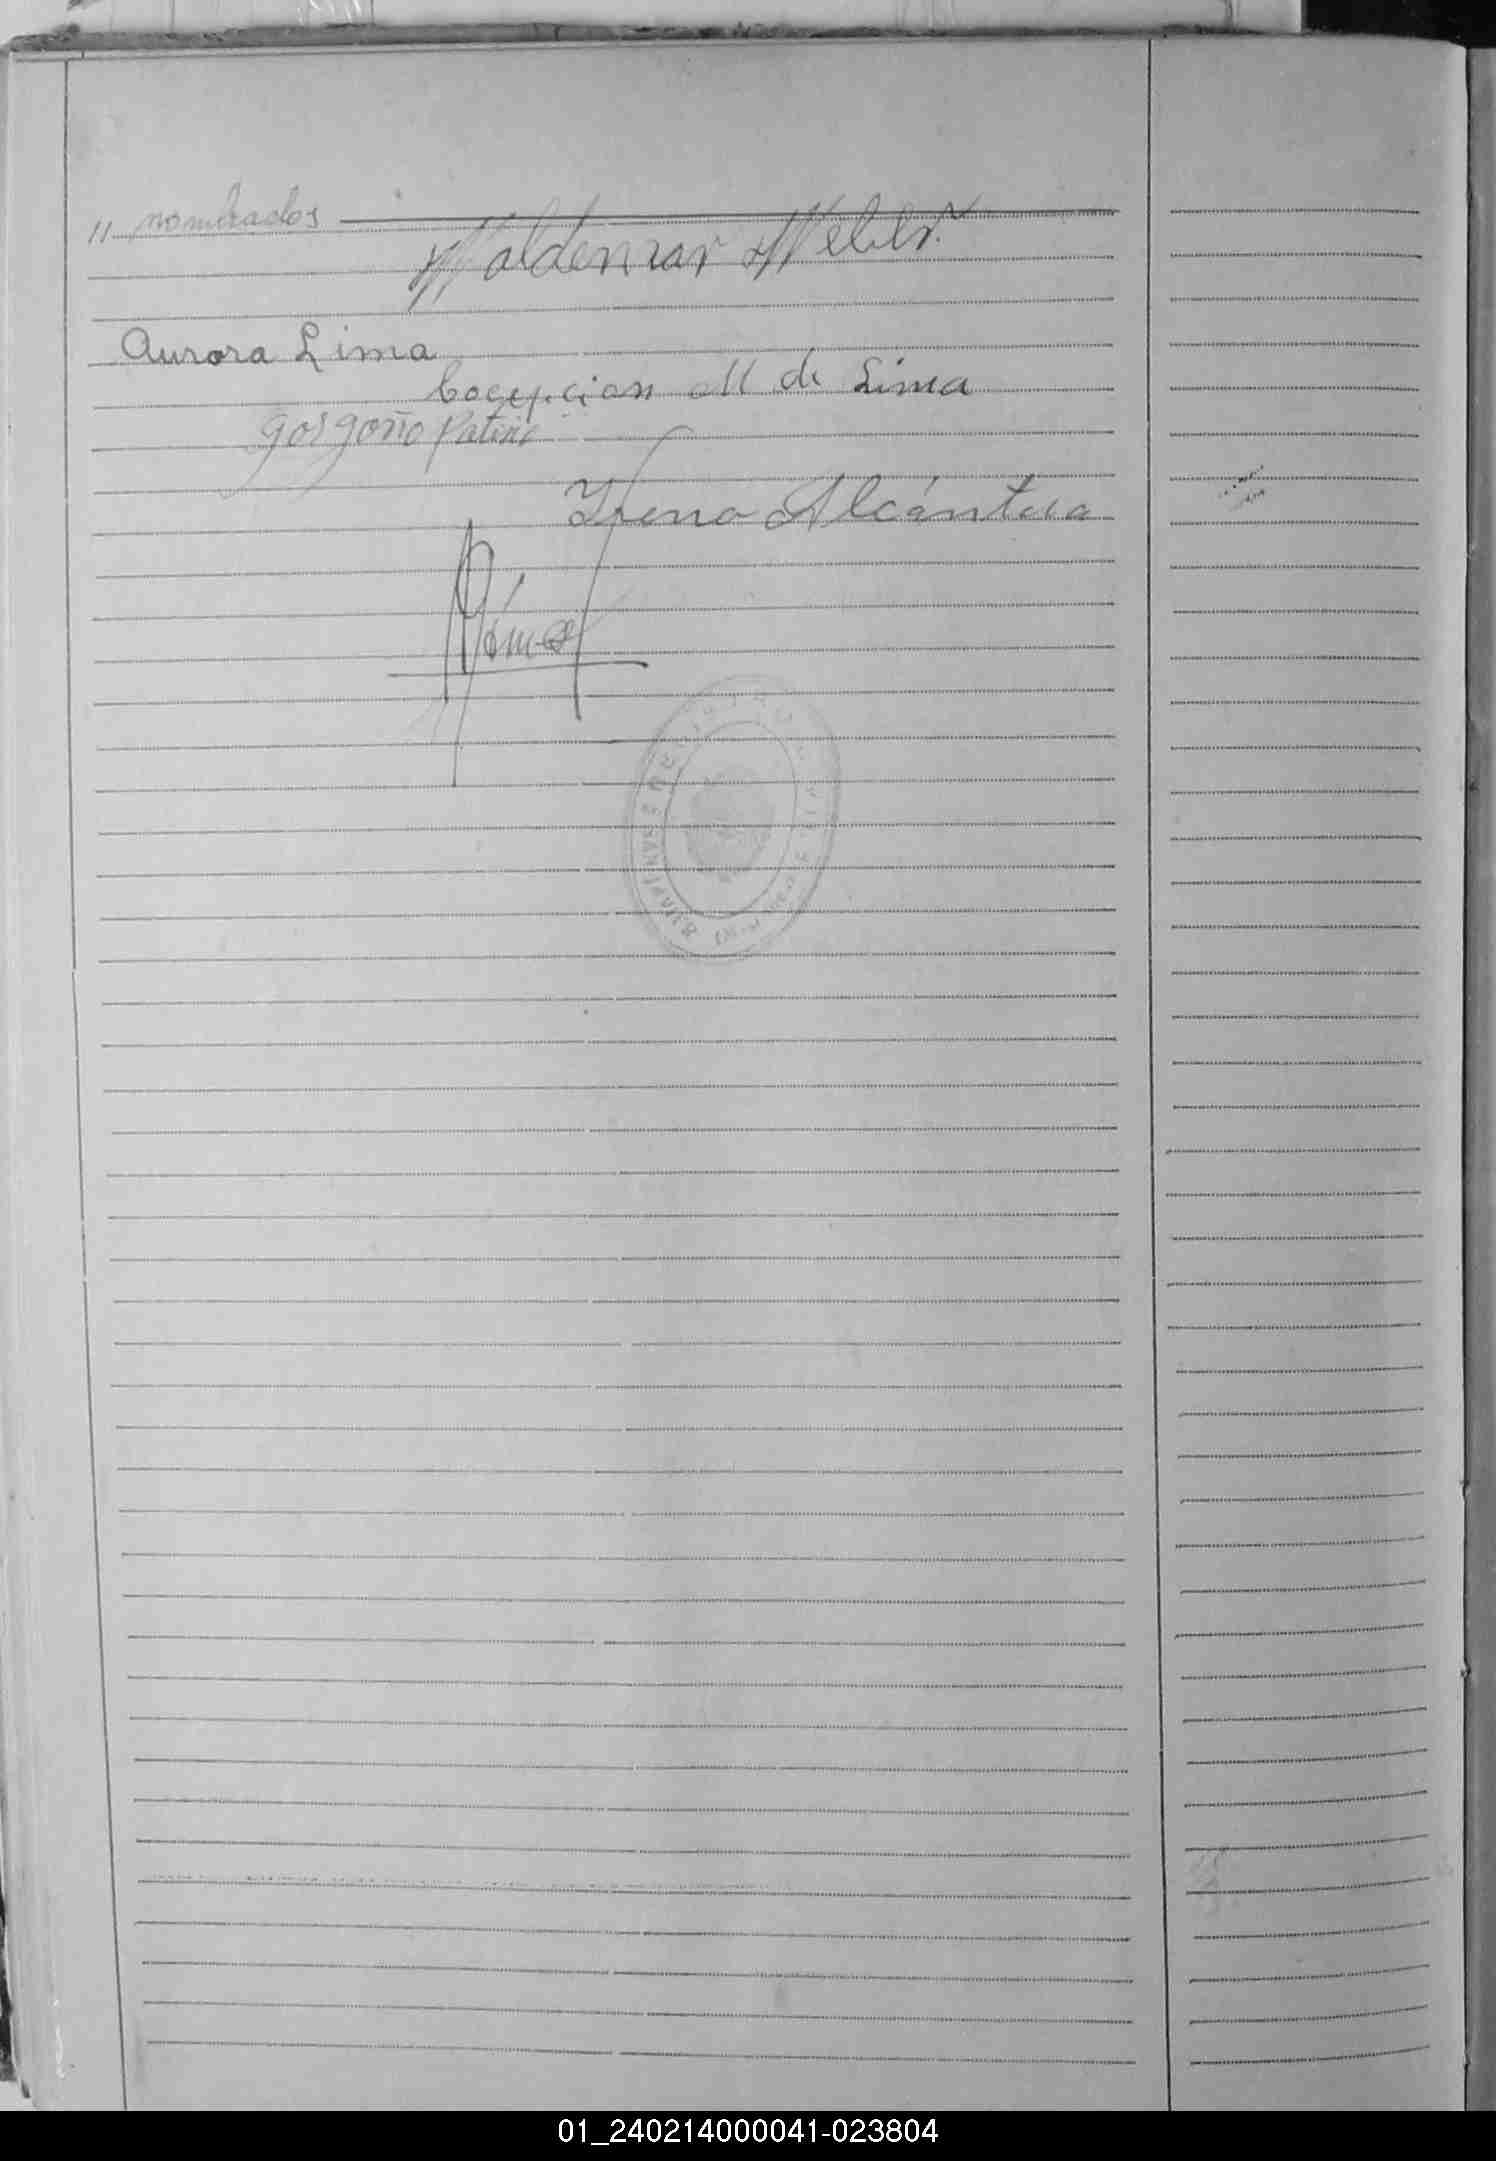 " nombrados
Waldemar Weber.
Aurora Lima
Cocepcion M de Lima
Gorgoño Patiño
Yreno Alcántara
Gómez
01_240214000041-023804